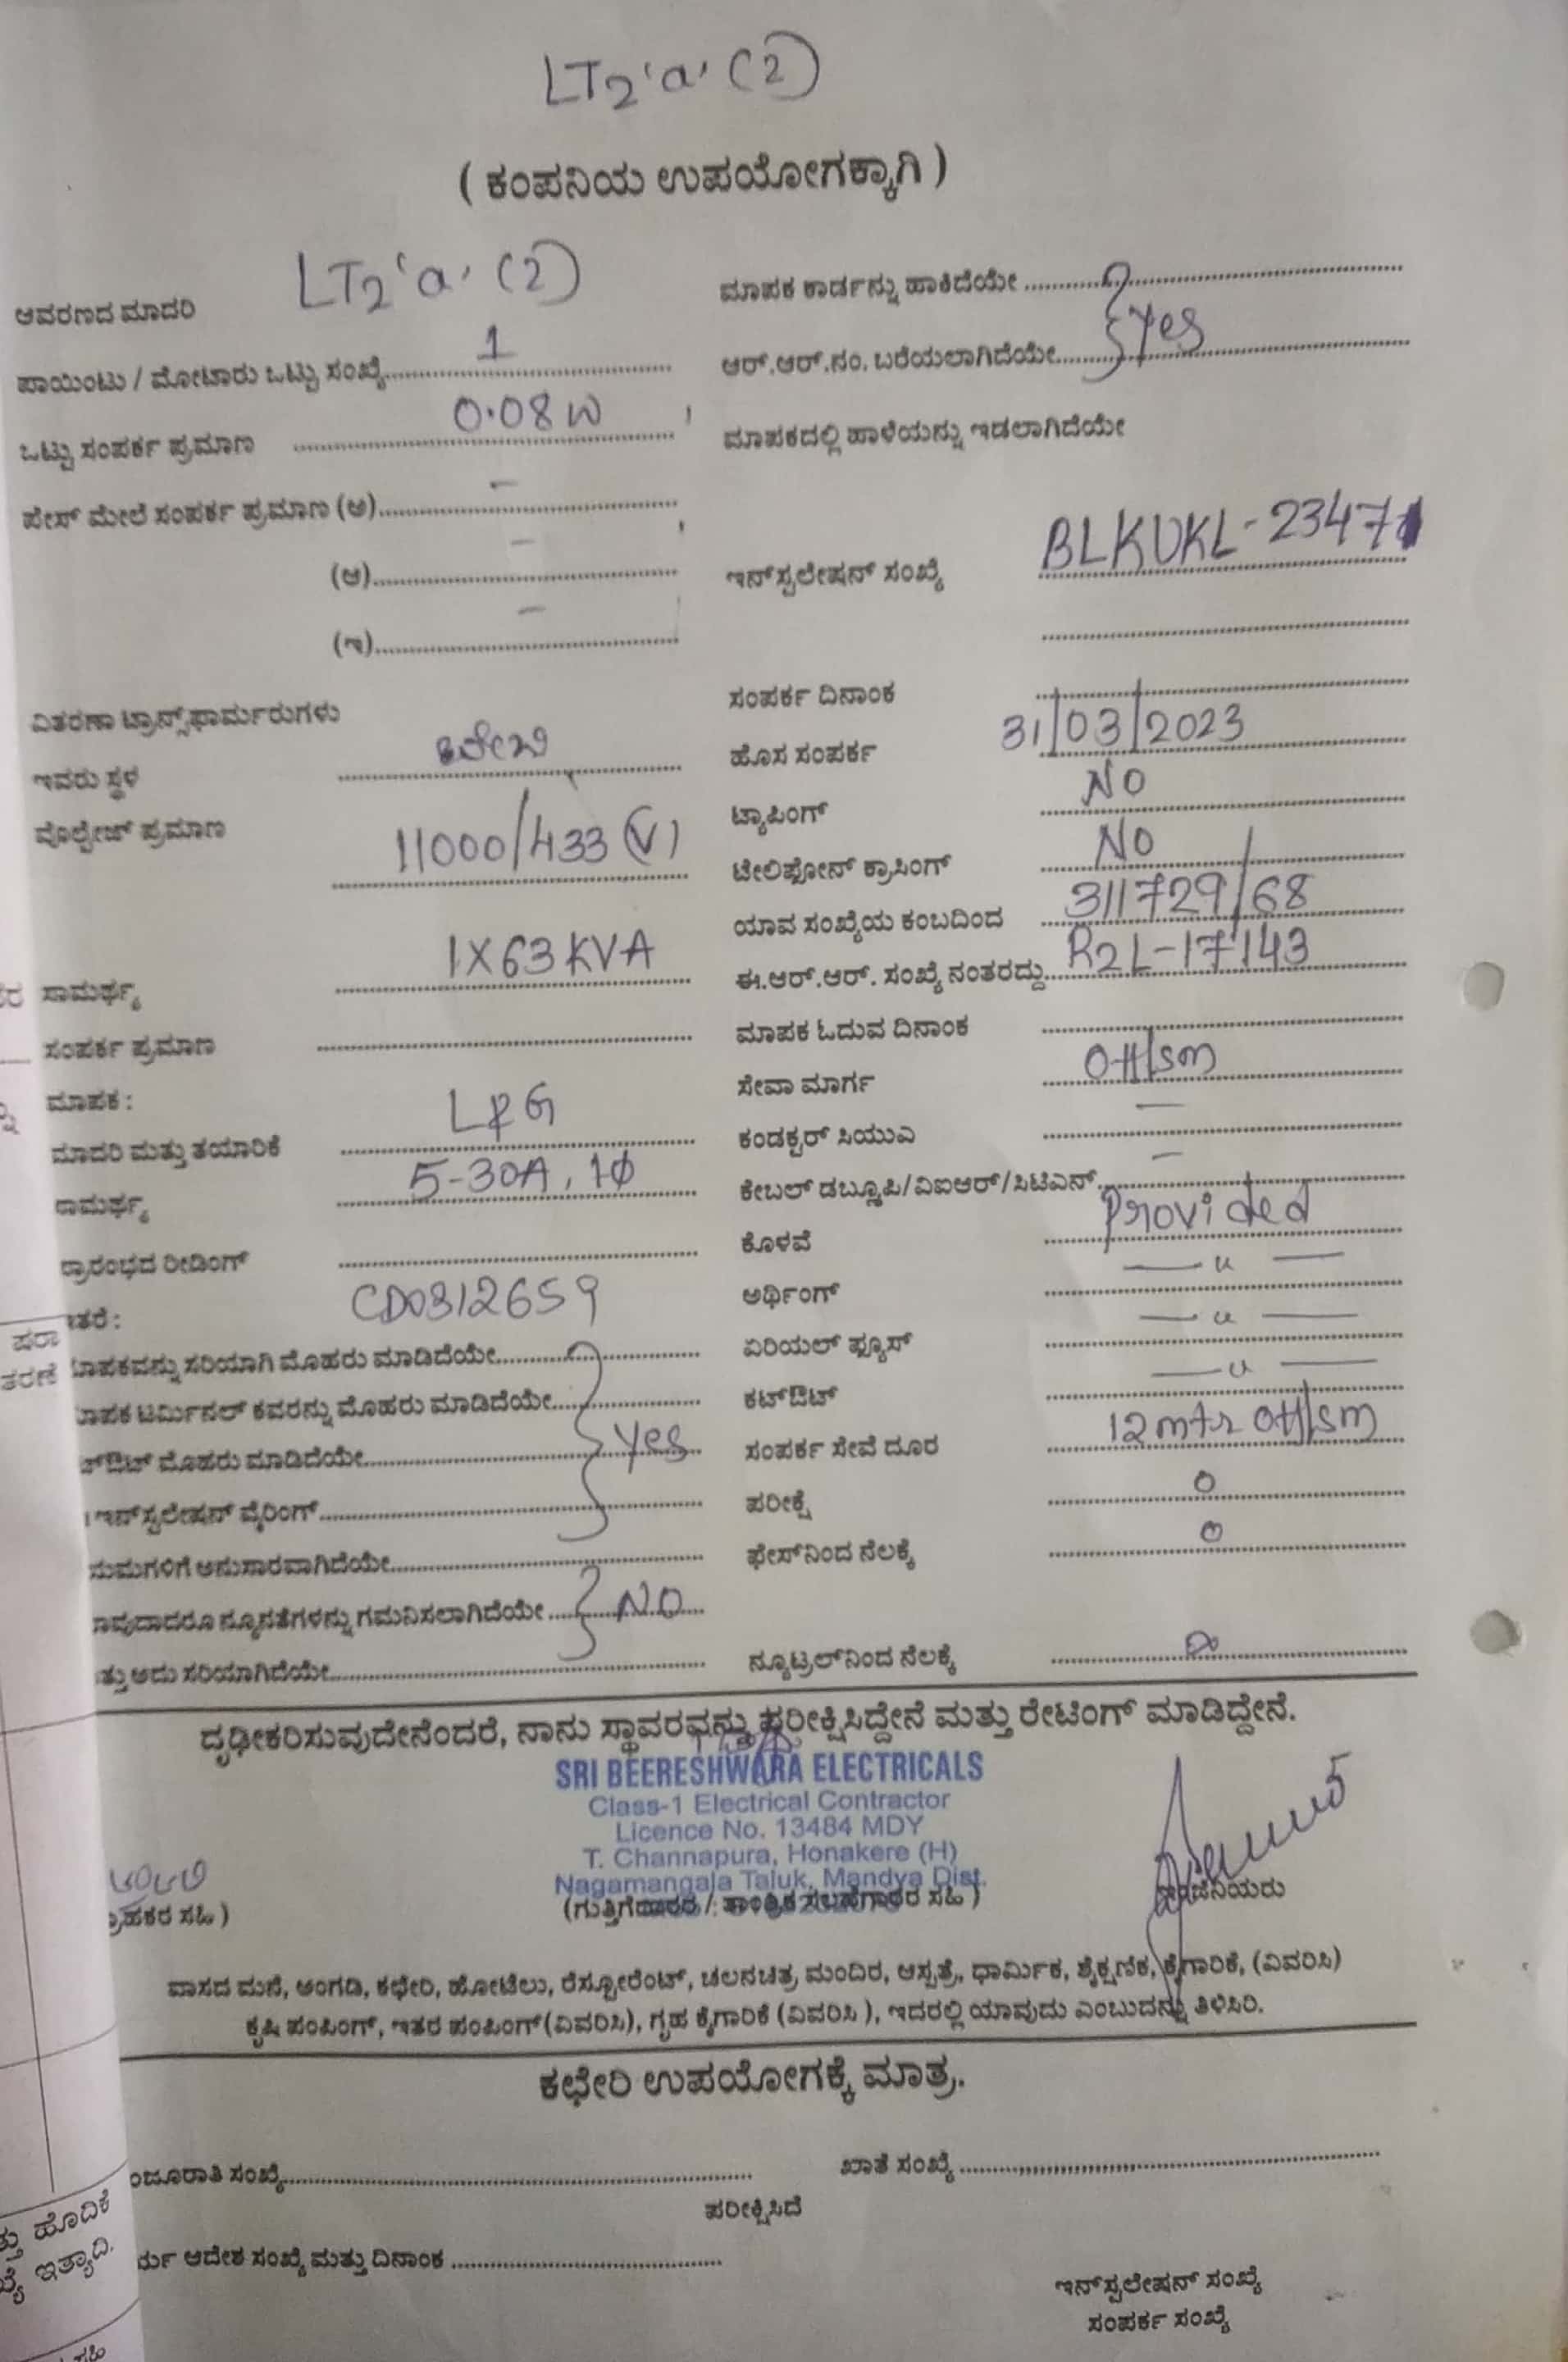 LT2 'a' (2)
( ಕಂಪನಿಯ ಉಪಯೋಗಕ್ಕಾಗಿ )
ಆವರಣದ ಮಾದರಿ LT2 'a' (2)
ಪಾಯಿಂಟು / ಮೋಟಾರು ಒಟ್ಟು ಸಂಖ್ಯೆ 1
ಒಟ್ಟು ಸಂಪರ್ಕ ಪ್ರಮಾಣ 0.08 W
ಪೇಸ್ ಮೇಲೆ ಸಂಪರ್ಕ ಪ್ರಮಾಣ (ಅ) -
(ಆ) -
(ಇ) -
ವಿತರಣಾ ಟ್ರಾನ್ಸ್‌ಫಾರ್ಮರುಗಳು
ಇವರು ಸ್ಥಳ
ವೊಲ್ಟೇಜ್ ಪ್ರಮಾಣ 11000/433 (V)
ಸಾಮರ್ಥ್ಯ 1X63 KVA
ಸಂಪರ್ಕ ಪ್ರಮಾಣ
ಮಾಪಕ :
ಮಾದರಿ ಮತ್ತು ತಯಾರಿಕೆ L&G
ಸಾಮರ್ಥ್ಯ 5-30A, 1ϕ
ಪ್ರಾರಂಭದ ರೀಡಿಂಗ್
ತರೆ : CD0312659
ಮಾಪಕವನ್ನು ಸರಿಯಾಗಿ ಮೊಹರು ಮಾಡಿದೆಯೇ
ಮಾಪಕ ಟರ್ಮಿನಲ್ ಕವರನ್ನು ಮೊಹರು ಮಾಡಿದೆಯೇ
ಔಟ್ ಮೊಹರು ಮಾಡಿದೆಯೇ Yes
ಇನ್‌ಸ್ಟಲೇಷನ್ ವೈರಿಂಗ್
ನಿಯಮಗಳಿಗೆ ಅನುಸಾರವಾಗಿದೆಯೇ
ಯಾವುದಾದರೂ ನ್ಯೂನತೆಗಳನ್ನು ಗಮನಿಸಲಾಗಿದೆಯೇ NO
ತ್ತು ಅದು ಸರಿಯಾಗಿದೆಯೇ
ಮಾಪಕ ಕಾರ್ಡನ್ನು ಹಾಕಿದೆಯೇ
ಆರ್.ಆರ್.ನಂ. ಬರೆಯಲಾಗಿದೆಯೇ Yes
ಮಾಪಕದಲ್ಲಿ ಹಾಳೆಯನ್ನು ಇಡಲಾಗಿದೆಯೇ
ಇನ್‌ಸ್ಟಲೇಷನ್ ಸಂಖ್ಯೆ BLKUKL-23471
ಸಂಪರ್ಕ ದಿನಾಂಕ
ಹೊಸ ಸಂಪರ್ಕ 31/03/2023
ಟ್ಯಾಪಿಂಗ್ NO
ಟೇಲಿಫೋನ್ ಕ್ರಾಸಿಂಗ್ NO
ಯಾವ ಸಂಖ್ಯೆಯ ಕಂಬದಿಂದ 311729/68
ಈ.ಆರ್.ಆರ್. ಸಂಖ್ಯೆ ನಂತರದ್ದು R2L-17143
ಮಾಪಕ ಓದುವ ದಿನಾಂಕ
ಸೇವಾ ಮಾರ್ಗ OH/SM
ಕಂಡಕ್ಟರ್ ಸಿಯುಎ —
ಕೇಬಲ್ ಡಬ್ಲ್ಯೂಪಿ/ವಿಐಆರ್/ಸಿಟಿಎನ್ —
ಕೊಳವೆ Provided
ಅರ್ಥಿಂಗ್ — u —
ಏರಿಯಲ್ ಫ್ಯೂಸ್ — u —
ಕಟ್‌ಔಟ್ — u —
ಸಂಪರ್ಕ ಸೇವೆ ದೂರ 12 mtr OH/SM
ಪರೀಕ್ಷೆ 0
ಫೇಸ್‌ನಿಂದ ನೆಲಕ್ಕೆ 0
ನ್ಯೂಟ್ರಲ್‌ನಿಂದ ನೆಲಕ್ಕೆ
ದೃಢೀಕರಿಸುವುದೇನೆಂದರೆ, ನಾನು ಸ್ಥಾವರವನ್ನು ಪರೀಕ್ಷಿಸಿದ್ದೇನೆ ಮತ್ತು ರೇಟಿಂಗ್ ಮಾಡಿದ್ದೇನೆ.
SRI BEERESHWARA ELECTRICALS
Class-1 Electrical Contractor
Licence No. 13484 MDY
T. Channapura, Honakere (H)
Nagamangala Taluk, Mandya Dist.
ಗ್ರಾಹಕರ ಸಹಿ ) (ಗುತ್ತಿಗೆದಾರರ / ತಾಂತ್ರಿಕ ಸಲಹೆಗಾರರ ಸಹಿ ) ಇಂಜಿನಿಯರು
ವಾಸದ ಮನೆ, ಅಂಗಡಿ, ಕಛೇರಿ, ಹೋಟೆಲು, ರೆಸ್ಟೋರೆಂಟ್, ಚಲನಚಿತ್ರ ಮಂದಿರ, ಆಸ್ಪತ್ರೆ, ಧಾರ್ಮಿಕ, ಶೈಕ್ಷಣಿಕ, ಕೈಗಾರಿಕೆ, (ವಿವರಿಸಿ)
ಕೃಷಿ ಪಂಪಿಂಗ್, ಇತರ ಪಂಪಿಂಗ್(ವಿವರಿಸಿ), ಗೃಹ ಕೈಗಾರಿಕೆ (ವಿವರಿಸಿ ), ಇದರಲ್ಲಿ ಯಾವುದು ಎಂಬುದನ್ನು ತಿಳಿಸಿರಿ.
ಕಛೇರಿ ಉಪಯೋಗಕ್ಕೆ ಮಾತ್ರ.
ಮಂಜೂರಾತಿ ಸಂಖ್ಯೆ ಖಾತೆ ಸಂಖ್ಯೆ
ಪರೀಕ್ಷಿಸಿದೆ
ರ್ಮ ಆದೇಶ ಸಂಖ್ಯೆ ಮತ್ತು ದಿನಾಂಕ
ಇನ್‌ಸ್ಪಲೇಷನ್ ಸಂಖ್ಯೆ
ಸಂಪರ್ಕ ಸಂಖ್ಯೆ
ತ್ತು ಹೊದಿಕೆ
ಇತ್ಯಾದಿ.